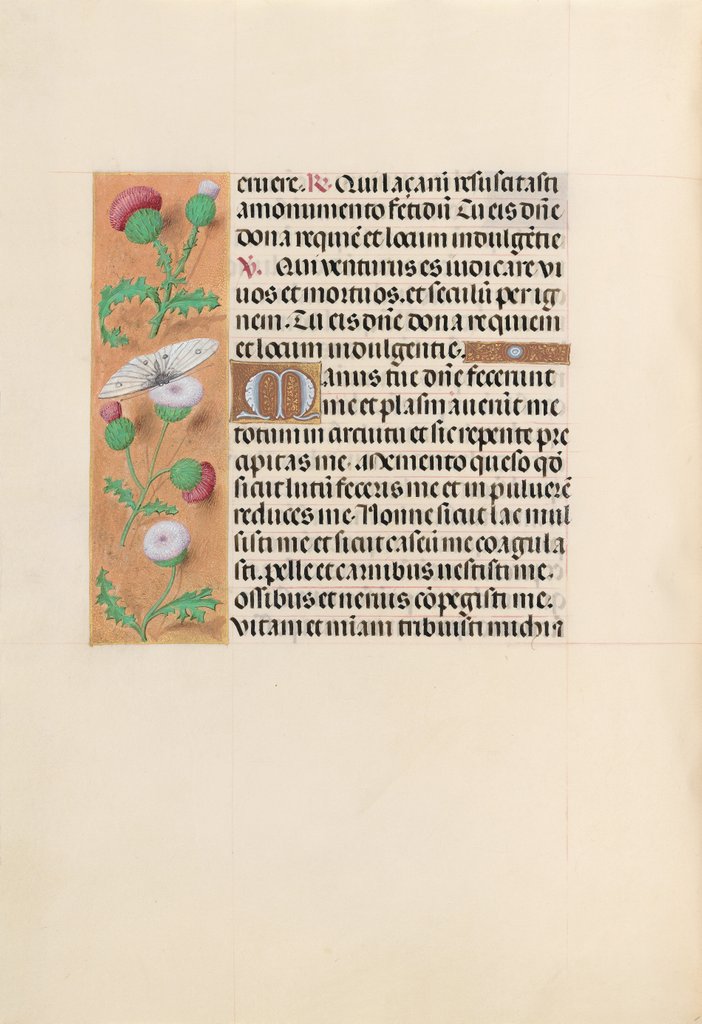 eruere. R. Qui lazarū resuscitasti
a monumento fetidū Tu eis dn̄e
dona requiē et locum indulgētie
V. Qui venturus es iudicare vi
uos et mortuos. et seculū per ig
nem. Tu eis dn̄e dona requiem
et locum indulgentie.
Manus tue dn̄e fecerunt
me et plasmauerūt me
totum in circuitu et sic repente pre
cipitas me. Memento queso qd̄
sicut lutū feceris me et in puluerē
reduces me. Nonne sicut lac mul
sisti me et sicut caseū me coagula
sti. pelle et carnibus uestisti me.
ossibus et neruis cōpegisti me.
vitam et mīam tribuisti michi ⁊